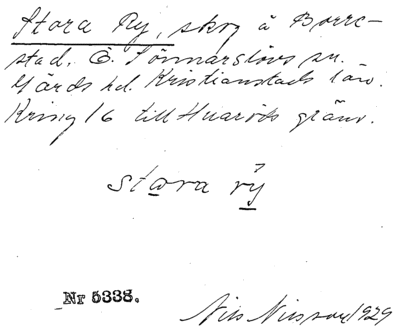 Stora Ry, skog å Borre-
stad. Ö. Sönnarslövs sn.
Gärds hd. Kristianstads län.
Kring 16 till Huaröds gräns.
stora rý
Nr 5338.
Nils Nilsson, 1929